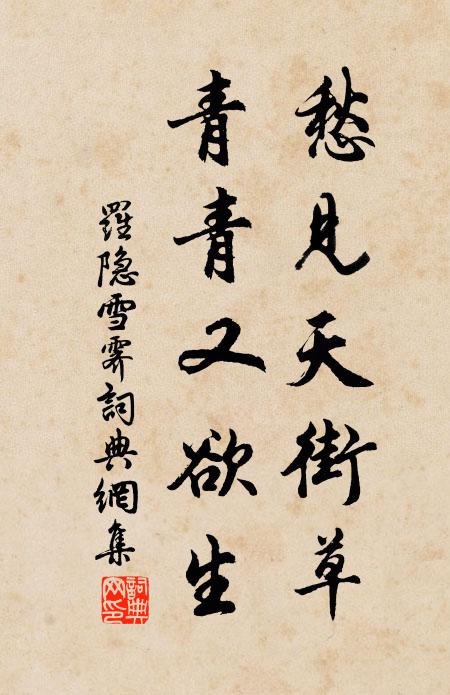 愁見天街草
青青又欲生
羅隐雪霽詞典網集
詞典網印